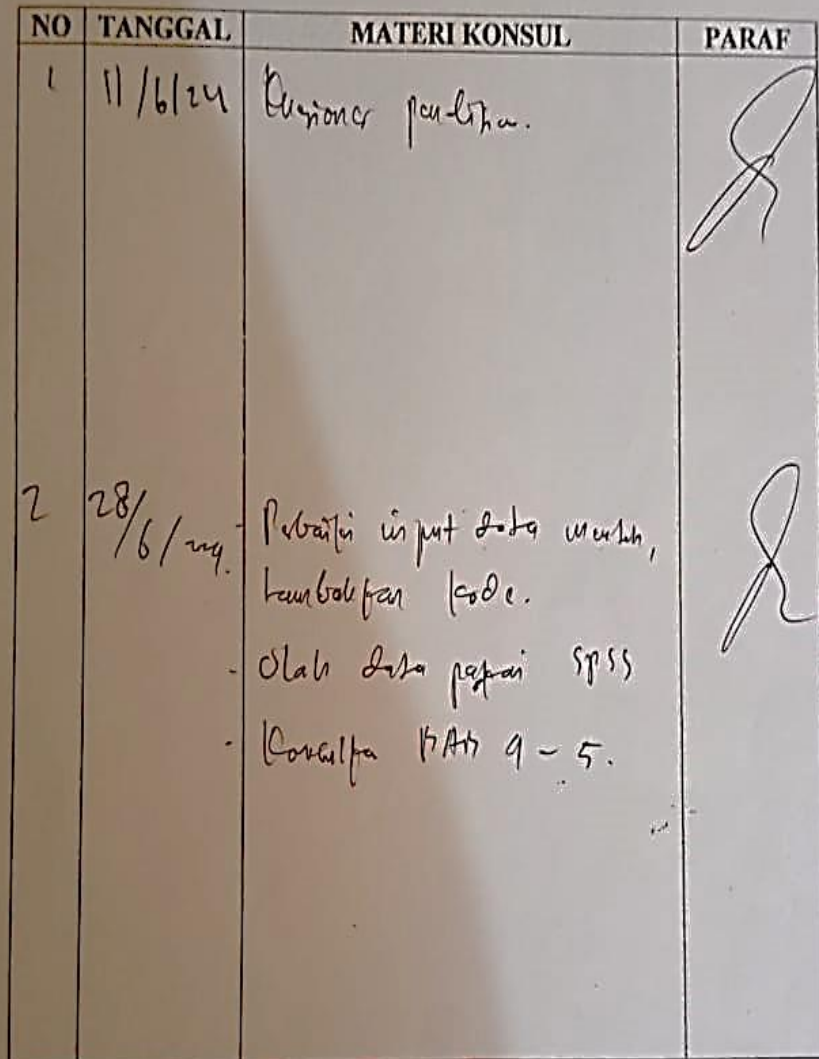 NO TANGGAL MATERI KONSUL PARAF
1 11/6/24 Kuesioner penelitian.
2 28/6/24. - Perbaiki input data mentah,
tambahkan kode.
- Olah data pakai SPSS
- Konsulkan BAB 4 - 5.